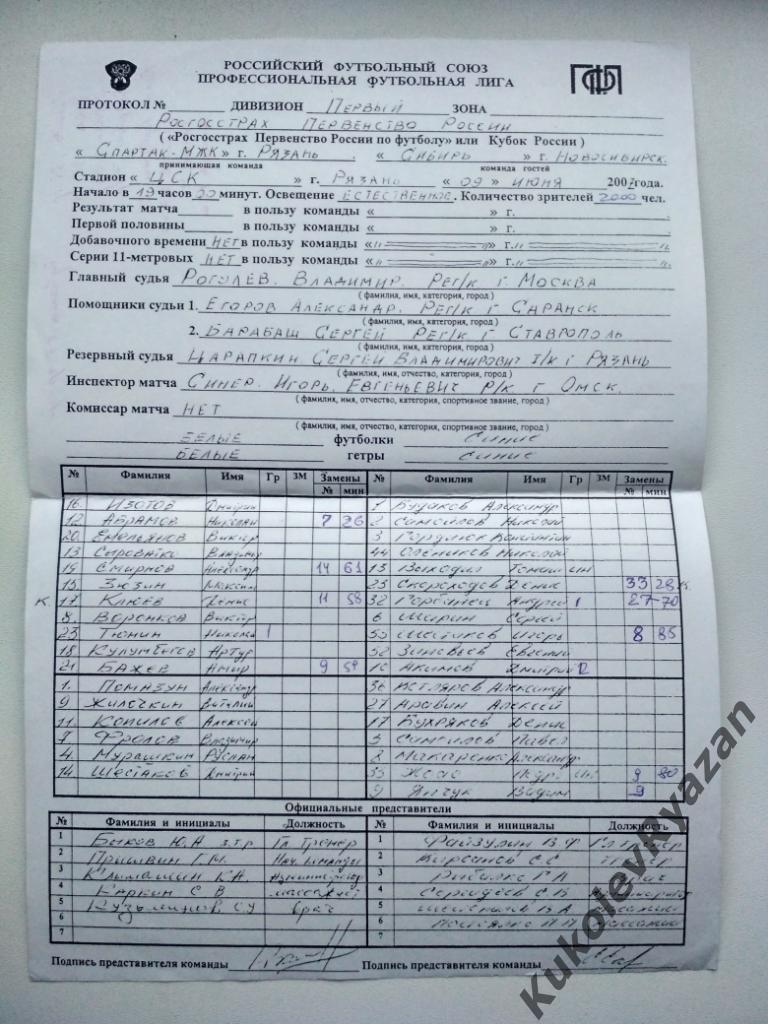 РОССИЙСКИЙ ФУТБОЛЬНЫЙ СОЮЗ
ПРОФЕССИОНАЛЬНАЯ ФУТБОЛЬНАЯ ЛИГА
ПРОТОКОЛ № ДИВИЗИОН Первый ЗОНА
Росгосстрах Первенство России
(«Росгосстрах Первенство России по футболу» или Кубок России)
« Спартак-МЖК » г. Рязань « Сибирь » г. Новосибирск.
принимающая команда команда гостей
Стадион « ЦСК » г. Рязань « 09 » июня 2007года.
Начало в 19 часов 00 минут. Освещение естественное. Количество зрителей 2000 чел.
Результат матча в пользу команды « » г.
Первой половины в пользу команды « » г.
Добавочного времени нет в пользу команды « » г.
Серии 11-метровых нет в пользу команды « » г.
Главный судья Роголев. Владимир. Рег/к г Москва
(фамилия, имя, категория, город)
Помощники судьи 1. Егоров Александр. Рег/к г Саранск
(фамилия, имя, категория, город)
2. Барабаш Сергей Рег/к г Ставрополь
Резервный судья Царапкин Сергей Владимирович I/к г Рязань
(фамилия, имя, отчество, категория, город)
Инспектор матча Синер. Игорь. Евгеньевич Р/к г Омск.
(фамилия, имя, отчество, категория, спортивное звание, город)
Комиссар матча нет
(фамилия, имя, отчество, категория, спортивное звание, город)
белые футболки синие
белые гетры синие
№ Фамилия Имя Гр ЗМ Замены № мин № Фамилия Имя Гр ЗМ Замены № мин
16. Изотов Дмитрий 1 Будаков Александр
12. Абрамов Николай 7 26 2 Самойлов Николай
20. Емельянов Виктор 3
13 Владимир 44 Олеников Николай
19 Смирнов Александр 14 61 13 Выходил Томаш ин
15. Зюзин Максим 23 Скороходов Денис 33 28 к.
к. 17. Клюев Денис 11 58 32 Горбанец Андрей 1 27 70
8. Воронков Виктор 6 Шарин Сергей
23. Тюнин Николай 1 55 Шестаков Игорь 8 85
18. Кулумбегов Артур 58 Зиновьев Евгений
21. Бажев Амир 9 54 10 Акимов Дмитрий 12
1. Помазун Александр 36 Котляров Александр
9 Жилочкин Виталий 27 Аравин Алексей
11. Копилов Алексей 17 Бухряков Денис
7 Фролов Владимир 5 Самойлов Павел
4. Мурашкин Руслан 8 Макаренко Александр
14. Шестаков Дмитрий 33 Жоао Педро ин 9 80
9 Янчук Вадим 9
Официальные представители
№ Фамилия и инициалы Должность № Фамилия и инициалы Должность
1 Быков Ю.А з.т.р Гл. тренер 1 Файзулин В.Ф Гл тренер
2 Пришвин Г.М. Нач. команды 2 Кирсанов С.С тренер
3 К.А. Администратор 3 врач
4 Каркин С В массажист 4
5 С.У врач 5
6 6
7 7
Подпись представителя команды Подпись представителя команды
KukolevRyazan